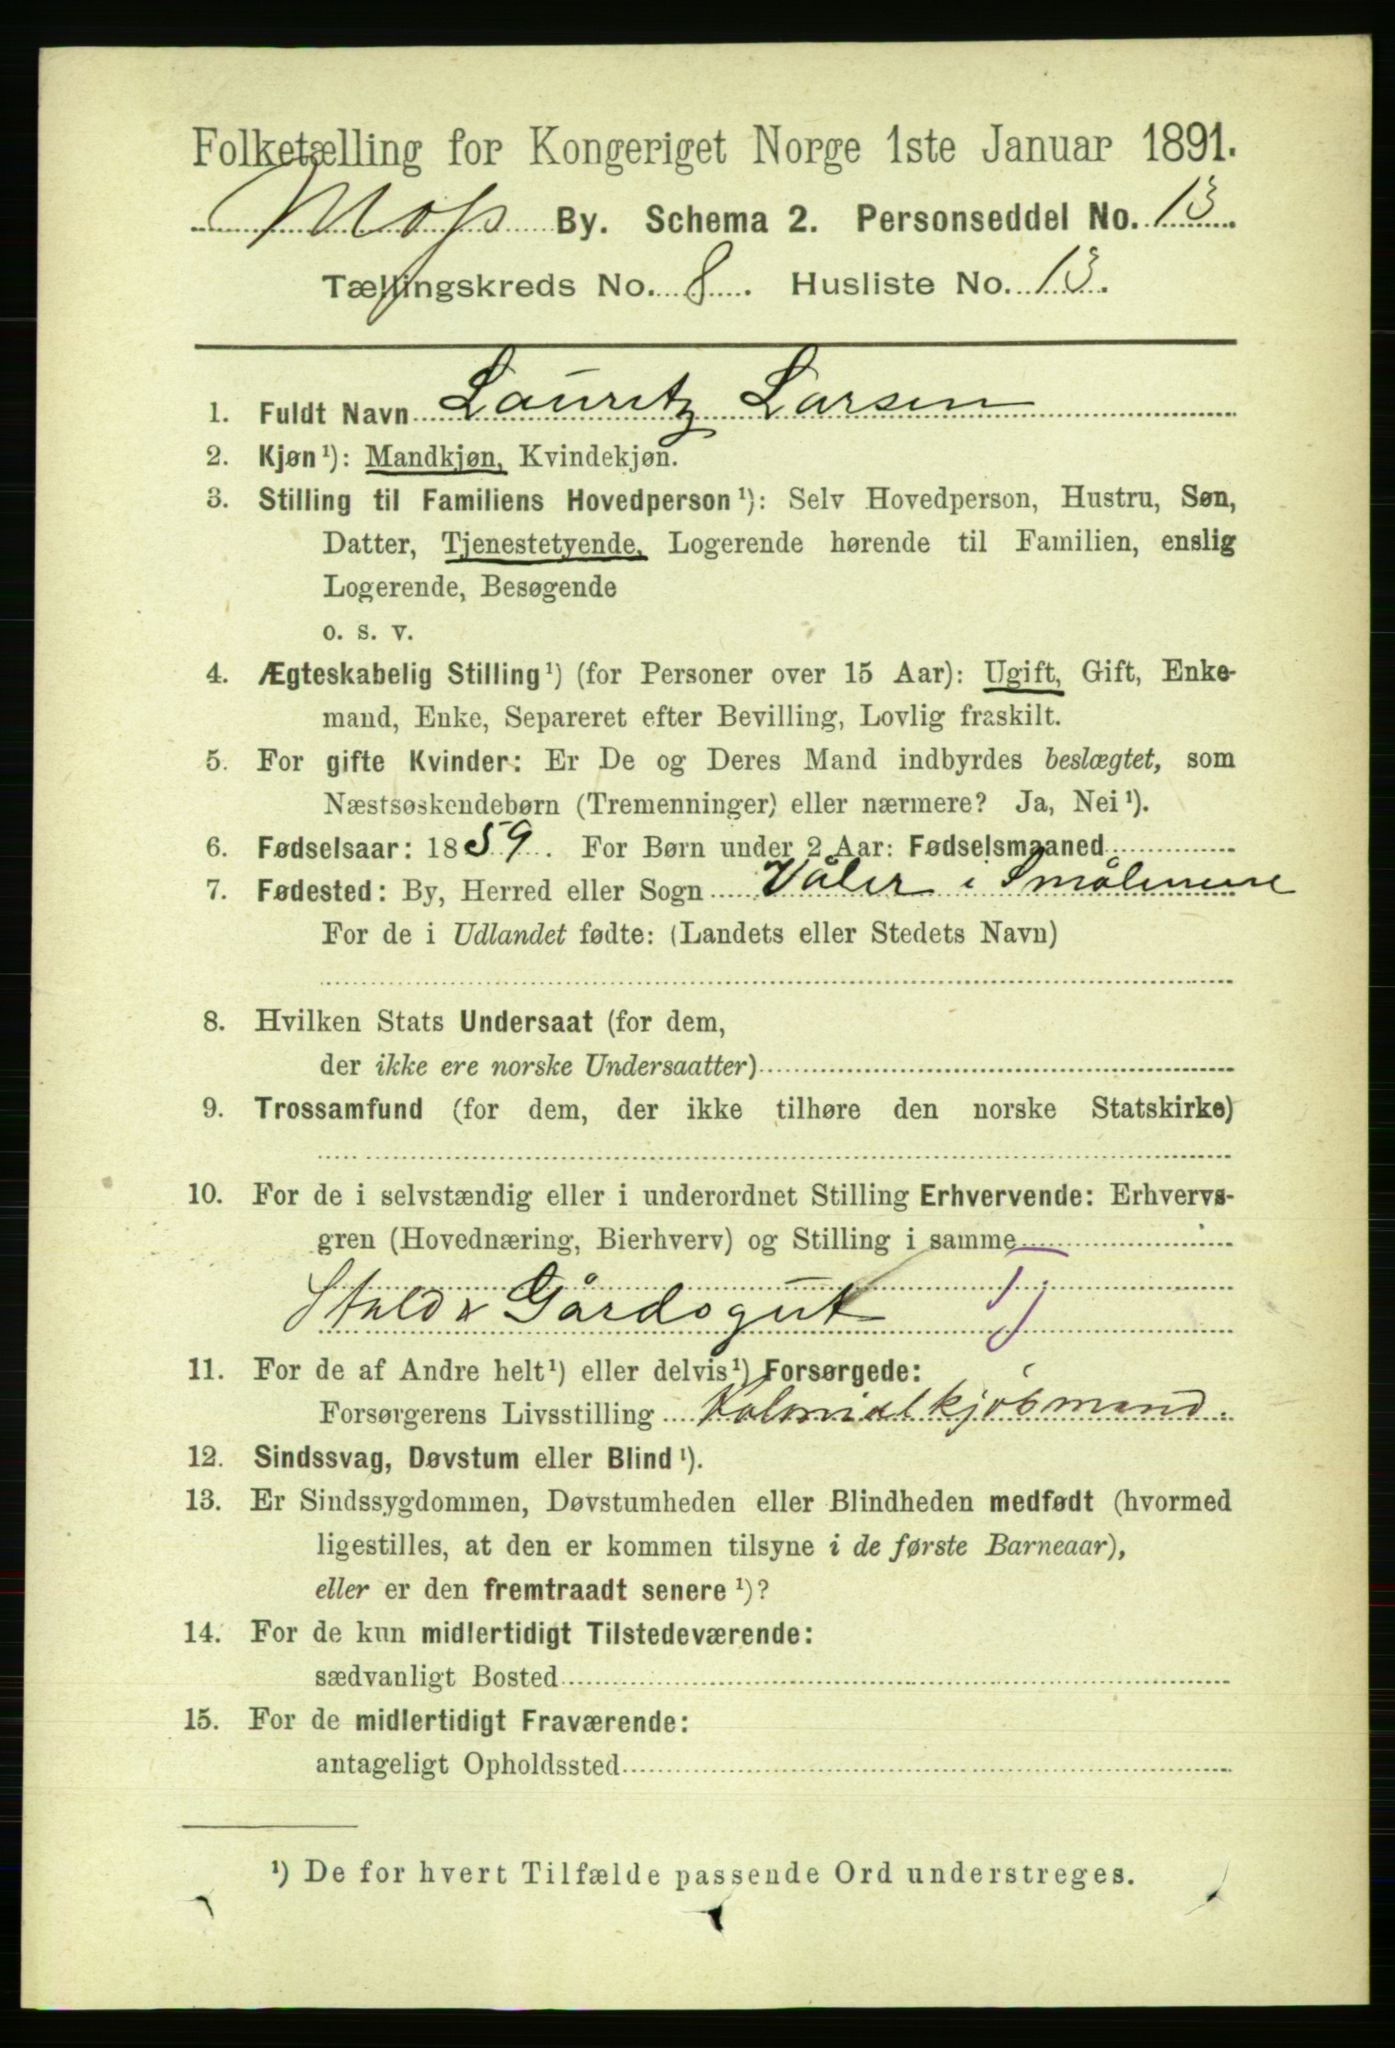 Folketælling for Kongeriget Norge 1ste Januar 1891.
Moss By. Schema 2. Personseddel No. 13.
Tællingskreds No. 8. Husliste No. 13.
1. Fuldt Navn Lauritz Larsen
2. Kjøn¹): Mandkjøn, Kvindekjøn.
3. Stilling til Familiens Hovedperson¹): Selv Hovedperson, Hustru, Søn,
Datter, Tjenestetyende, Logerende hørende til Familien, enslig
Logerende, Besøgende
o. s. v.
4. Ægteskabelig Stilling¹) (for Personer over 15 Aar): Ugift, Gift, Enke-
mand, Enke, Separeret efter Bevilling, Lovlig fraskilt.
5. For gifte Kvinder: Er De og Deres Mand indbyrdes beslægtet, som
Næstsøskendebørn (Tremenninger) eller nærmere? Ja, Nei¹).
6. Fødselsaar: 1859. For Børn under 2 Aar: Fødselsmaaned
7. Fødested: By, Herred eller Sogn Våler i Smålenene
For de i Udlandet fødte: (Landets eller Stedets Navn)
8. Hvilken Stats Undersaat (for dem,
der ikke ere norske Undersaatter)
9. Trossamfund (for dem, der ikke tilhøre den norske Statskirke)
10. For de i selvstændig eller i underordnet Stilling Erhvervende: Erhvervs-
gren (Hovednæring, Bierhverv) og Stilling i samme
Stald & Gårdsgut Tj
11. For de af Andre helt¹) eller delvis¹) Forsørgede:
Forsørgerens Livsstilling Kolonialkjøbmand.
12. Sindssvag, Døvstum eller Blind¹).
13. Er Sindssygdommen, Døvstumheden eller Blindheden medfødt (hvormed
ligestilles, at den er kommen tilsyne i de første Barneaar),
eller er den fremtraadt senere¹)?
14. For de kun midlertidigt Tilstedeværende:
sædvanligt Bosted
15. For de midlertidigt Fraværende:
antageligt Opholdssted
¹) De for hvert Tilfælde passende Ord understreges.